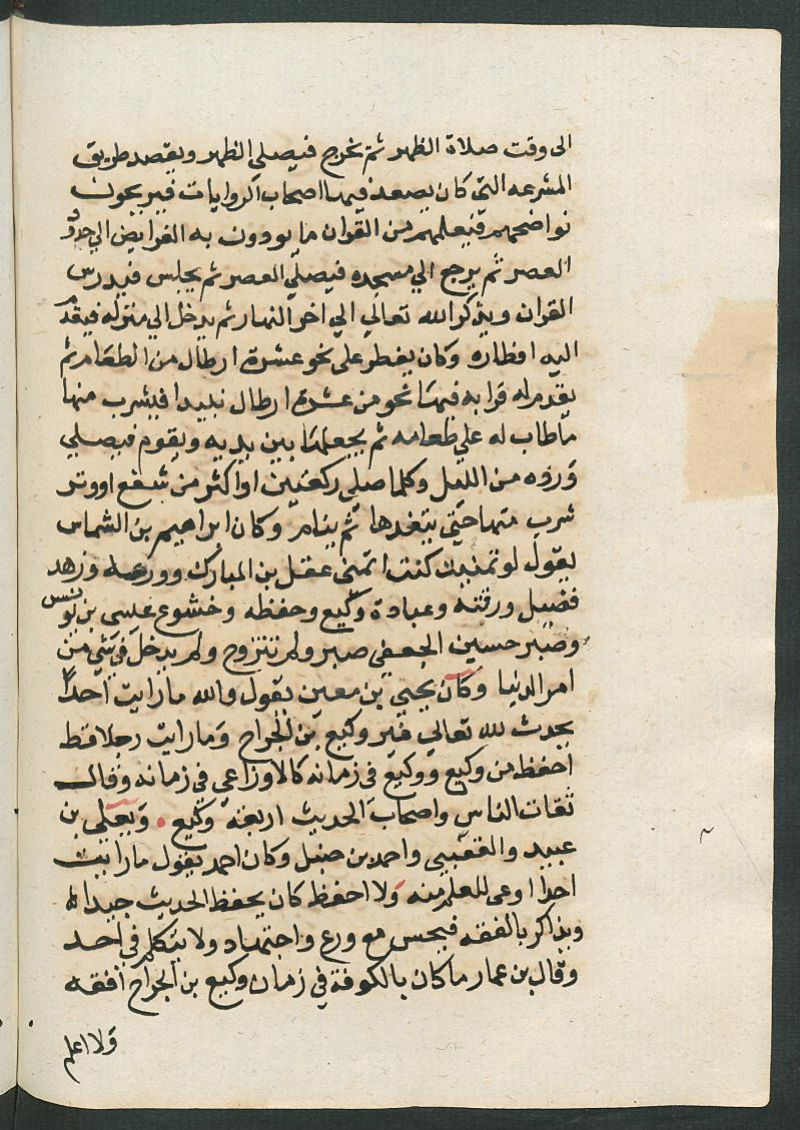 الى وقت صلاة الظهر ثم يخرج فيصلي الظهر ويقصد طريق
المشرعه التي كان يصعد فيها اصحاب الروايات فيريحون
نواضحهم فيعلمهم من القران ما يودون به الفرايض الى حدود
العصر ثم يرجع الي مسجده فيصلي العصر ثم يجلس فيدرس
القران ويذكر الله تعالي الي اخر النهار ثم يدخل الي منزله فيقدم
اليه افطاره وكان يفطر على نحو عشرة ارطال من الطعام ثم
يقدم له قرابه فيها نحو من عشرة ارطال نبيدا فيشرب منها
ما طاب له علي طعامه ثم يجعلها بين يديه ويقوم فيصلي
ورده من الليل وكلما صلي ركعتين او اكثر من شفع او وتر
شرب منها حتي ينفدها ثم ينام وكان ابراهيم بن الشماس
يقول لو تمنيت كنت اتمنى عقل بن المبارك وورعه وزهد
فضيل ورقته وعبادة وكيع وحفظه وخشوع عيسى بن يونس
وصبر حسين الجعفي صبر ولم يتزوج ولم يدخل في شي من
امر الدنيا وكان يحيي بن معين يقول والله ما رايت احدا
يحدث لله تعالي غير وكيع بن الجراح وما رايت رجلا قط
احفظ من وكيع ووكيع في زمانه كالاوزاعي في زمانه وقال
ثقات الناس واصحاب الحديث اربعة وكيع ويعلى بن
عبيد والقعنبي واحمد بن حنبل وكان احمد يقول ما رايت
احدا اوعى للعلم منه ولا احفظ كان يحفظ الحديث جيدا
ويذاكر بالفقه فيحسن مع ورع واجتهاد ولا يتكلم في احد
وقال بن عمار ما كان بالكوفة في زمان وكيع بن الجراح افقه
ولا اعلم